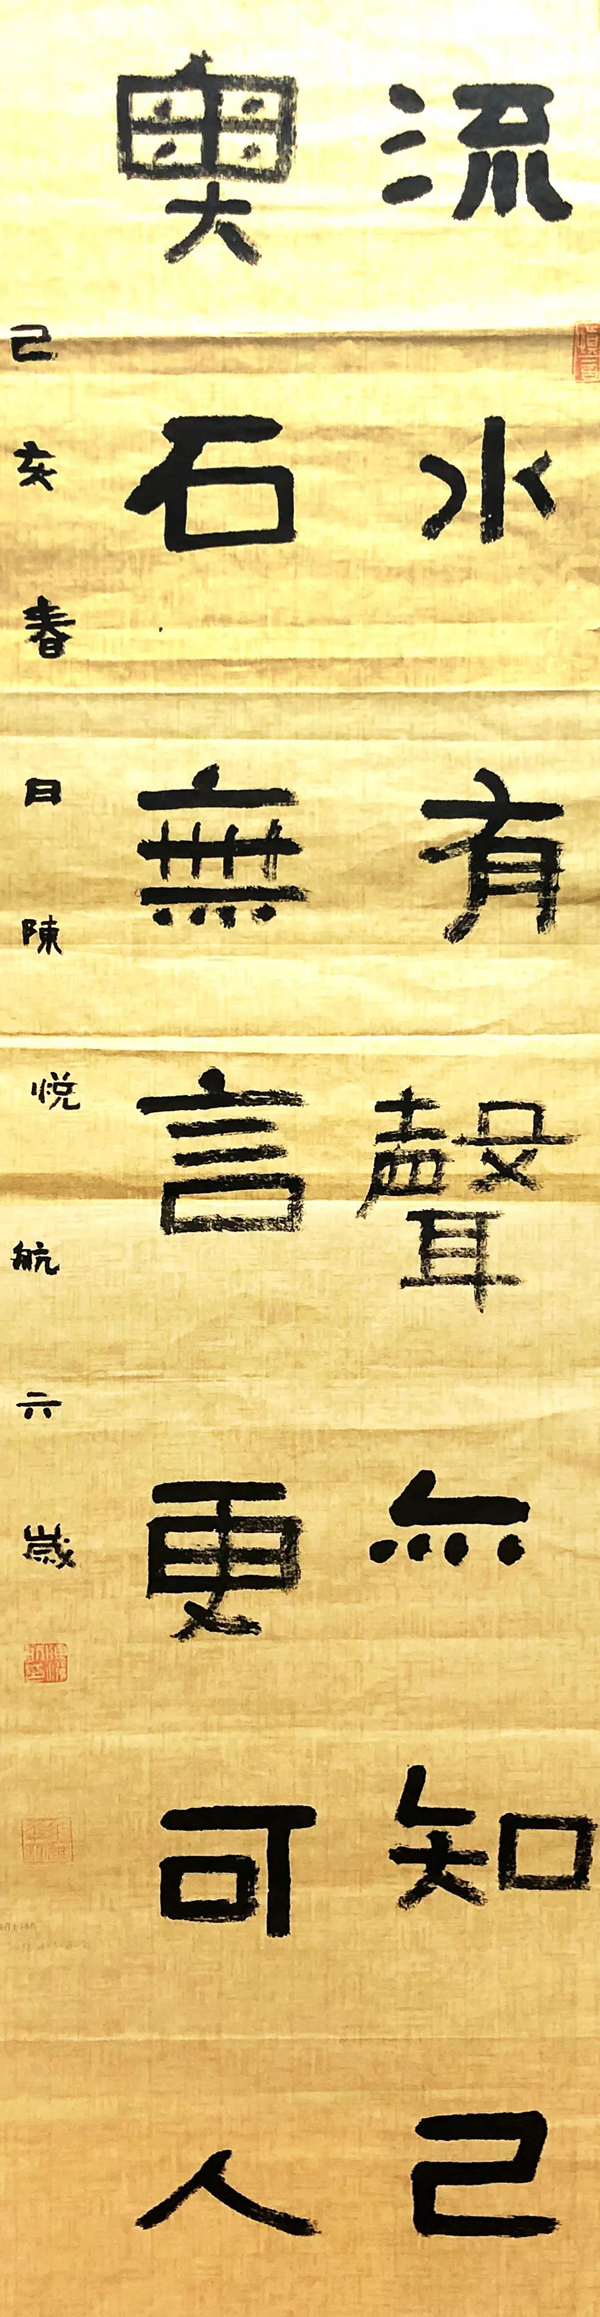 流水有聲無知己
奧石無言更可人
己亥春日陳悦航六歲